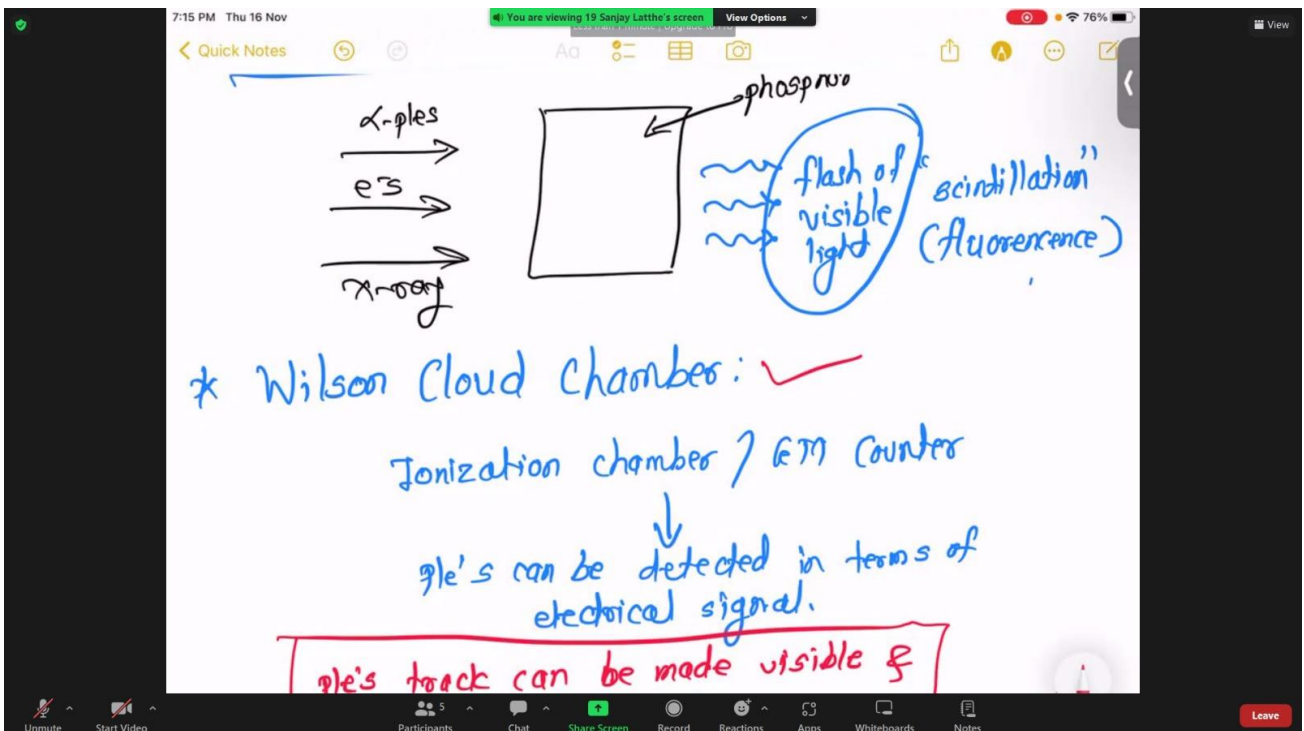 7:15 PM Thu 16 Nov
You are viewing 19 Sanjay Latthe's screen
View Options
76%
View
Quick Notes
Aa
α-ples
e⁻s
x-ray
flash of
visible
light
"scintillation"
(fluorencence)
* Wilson Cloud Chamber:
Ionization chamber / GM Counter
↓
Ple's can be detected in terms of
electrical signal.
Ple's track can be made visible &
Unmute
Start Video
5
Participants
Chat
Share Screen
Record
Reactions
Apps
Whiteboards
Notes
Leave